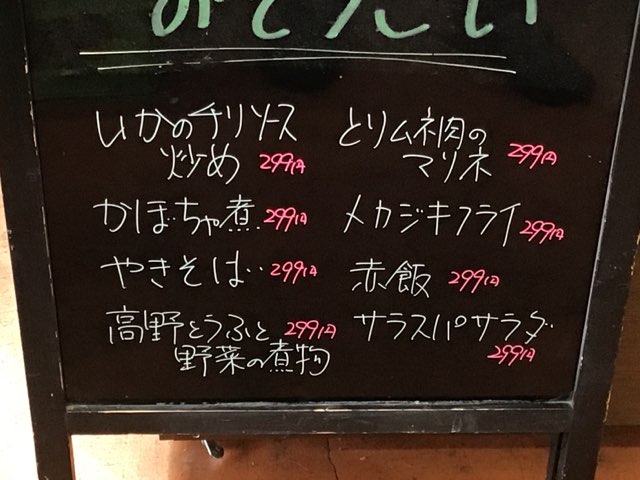 おそうざい
いかのチリソース
炒め 299円
かぼちゃ煮 299円
やきそば 299円
高野とうふと 299円
野菜の煮物
とりムネ肉の
マリネ 299円
メカジキフライ 299円
赤飯 299円
サラスパサラダ
299円